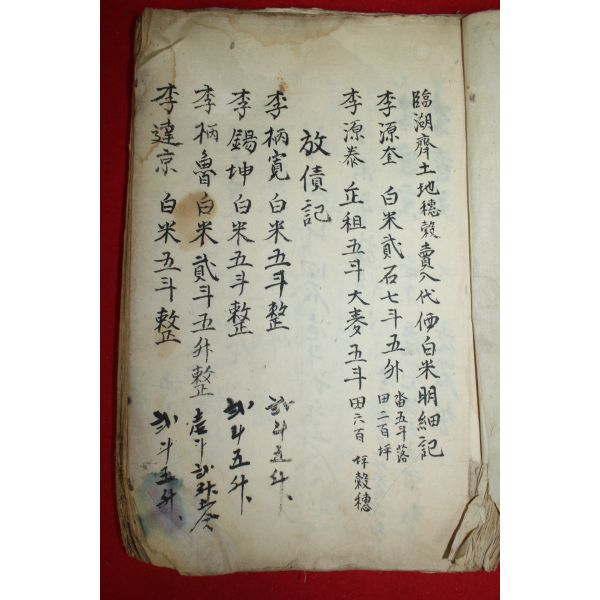 臨湖齊土地穗穀賣入代価白米明細記
李源奎 白米貳石七斗五升 畓五斗落 田二百坪
李源泰 正租五斗大麥五斗 田六百坪穀穗
放債記
李柄寬 白米五斗整 貳斗五升
李錫坤 白米五斗整 貳斗五升
李柄魯 白米貳斗五升整 壱斗貳升五合
李達京 白米五斗整 貳斗五升